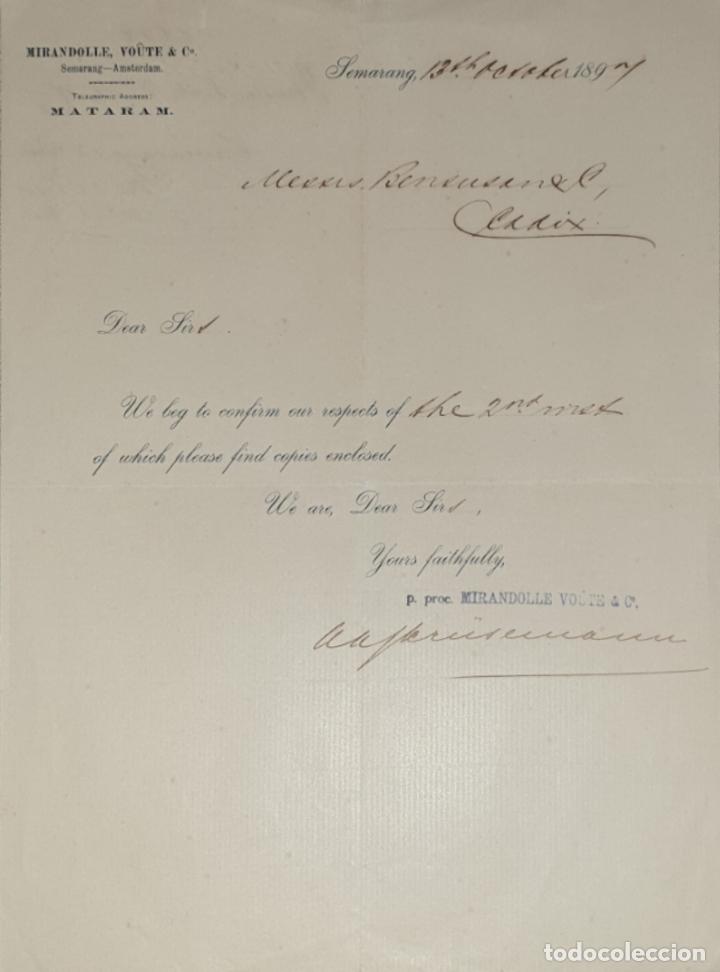 MIRANDOLLE, VOÛTE & Co.
Semarang—Amsterdam.
TELEGRAPHIC ADDRESS:
MATARAM.
Semarang, 13th October 1897
Messrs. Bensusan & C,
Cadix
Dear Sirs.
We beg to confirm our respects of the 2nd inst
of which please find copies enclosed.
We are, Dear Sirs,
Yours faithfully,
p. proc. MIRANDOLLE VOÛTE & Co.
todocoleccion